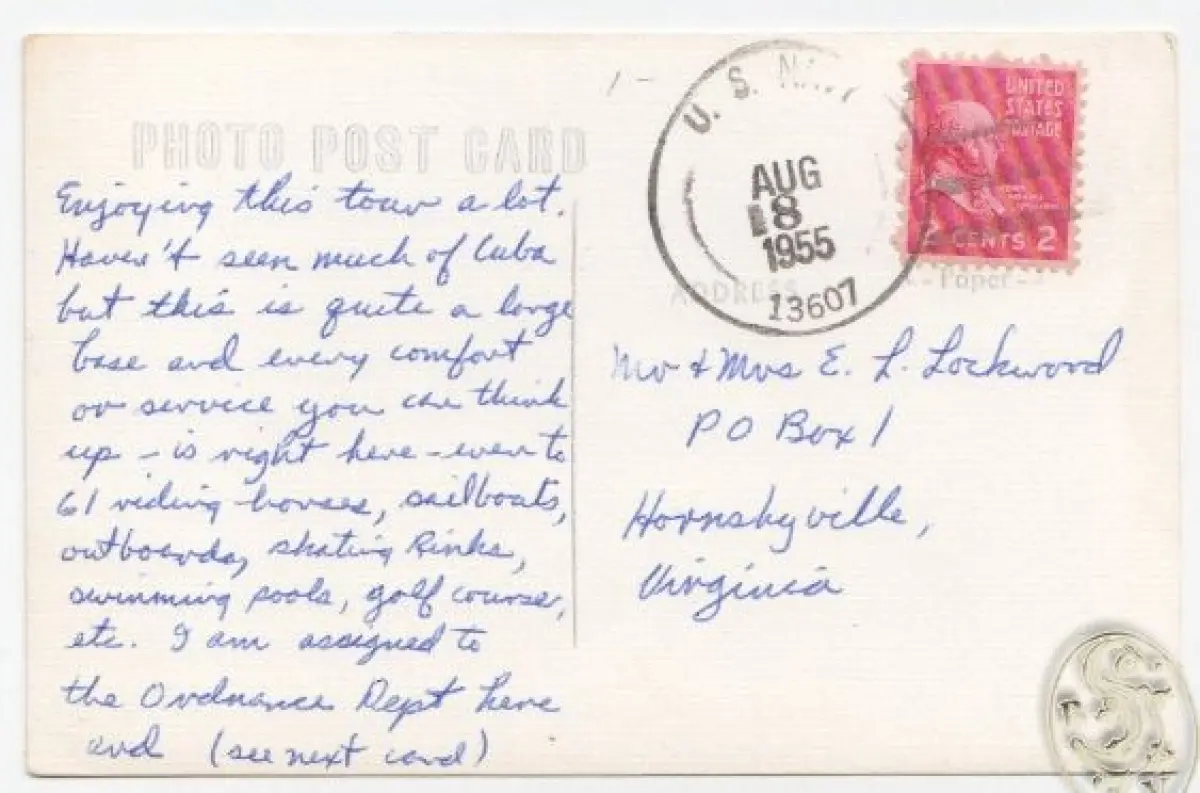 PHOTO POST CARD
Enjoying this tour a lot.
Haven't seen much of Cuba
but this is quite a large
base and every comfort
or service you can think
up - is right here - even to
61 riding horses, sailboats,
outboards, skating Rinks,
swimming pools, golf course,
etc. I am assigned to
the Ordnance Dept here
and (see next card)
U. S. N
AUG
8
1955
13607
UNITED
STATES
POSTAGE
2 CENTS 2
ADDRESS
Paper
Mr & Mrs E. L. Lockwood
PO Box 1
Hornskyville,
Virginia